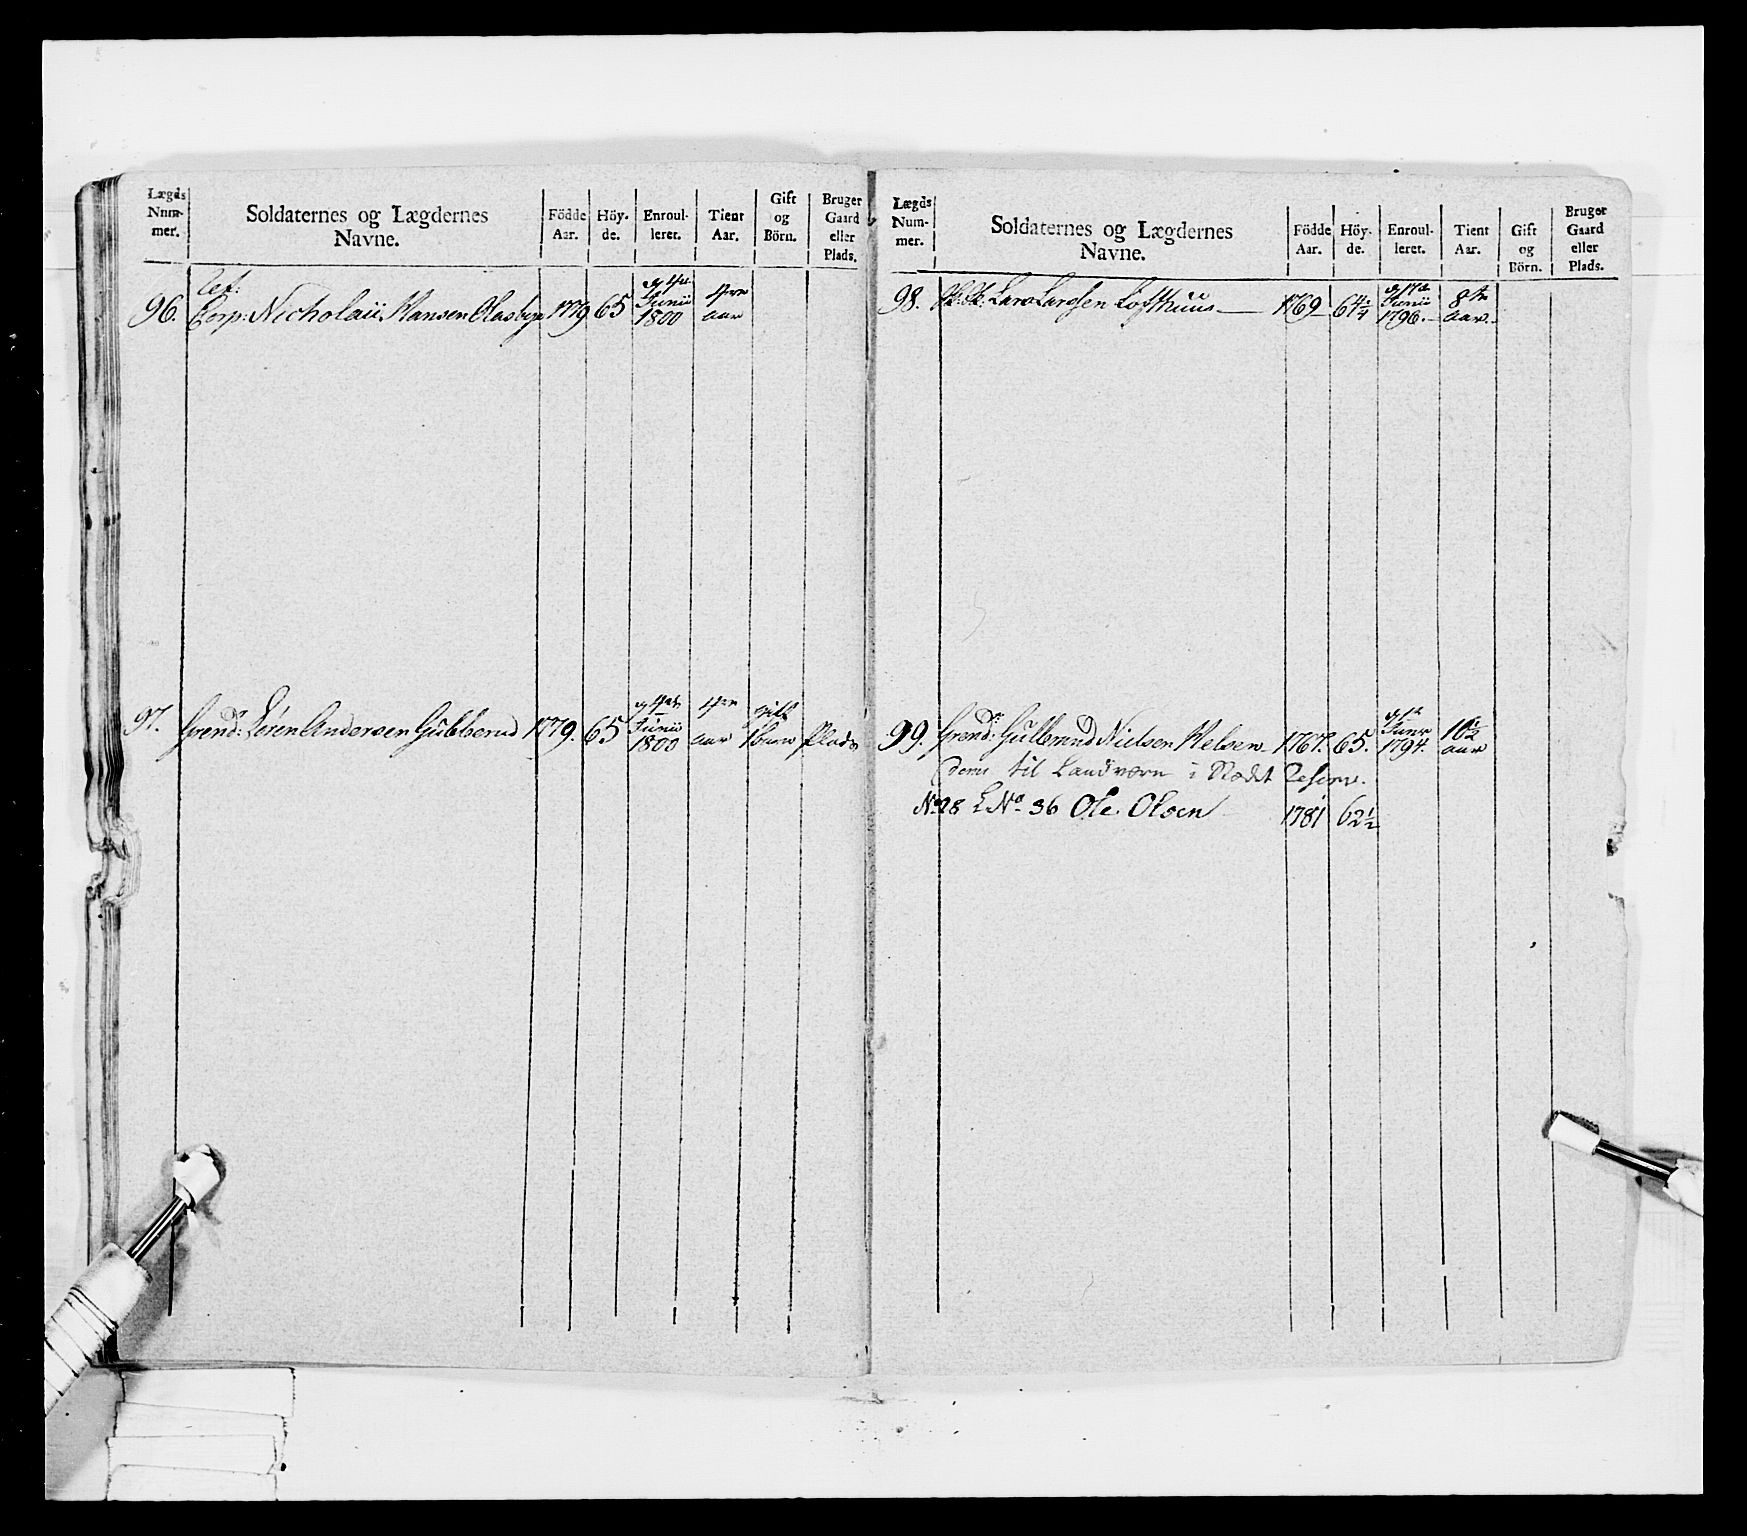 Lægds Num- mer.
Soldaternes og Lægdernes Navne.
Födde Aar.
Höy- de.
Enroul- leret.
Tient Aar.
Gift og Börn.
Bruger Gaard eller Plads.
96. Corp: Nicholaii Hansen 1779 65 Junii 1800 4re aar
97. Grend: Sören Andersen Gubberud 1779. 65 Junii 1800 4re aar gift 1 barn Plads
Lægds Num- mer.
Soldaternes og Lægdernes Navne.
Födde Aar.
Höy- de.
Enroul- leret.
Tient Aar.
Gift og Börn.
Bruger Gaard eller Plads.
98. Lars Larsen Lofthuus 1769 64 1/4 Junii 1796. 8te aar.
99. Grend: Gulbrand Nielsen 1767. 65. 1794. 10 1/2 aar
til Landværn i
No 28 L No 36 Ole Olsen 1781 62 1/2